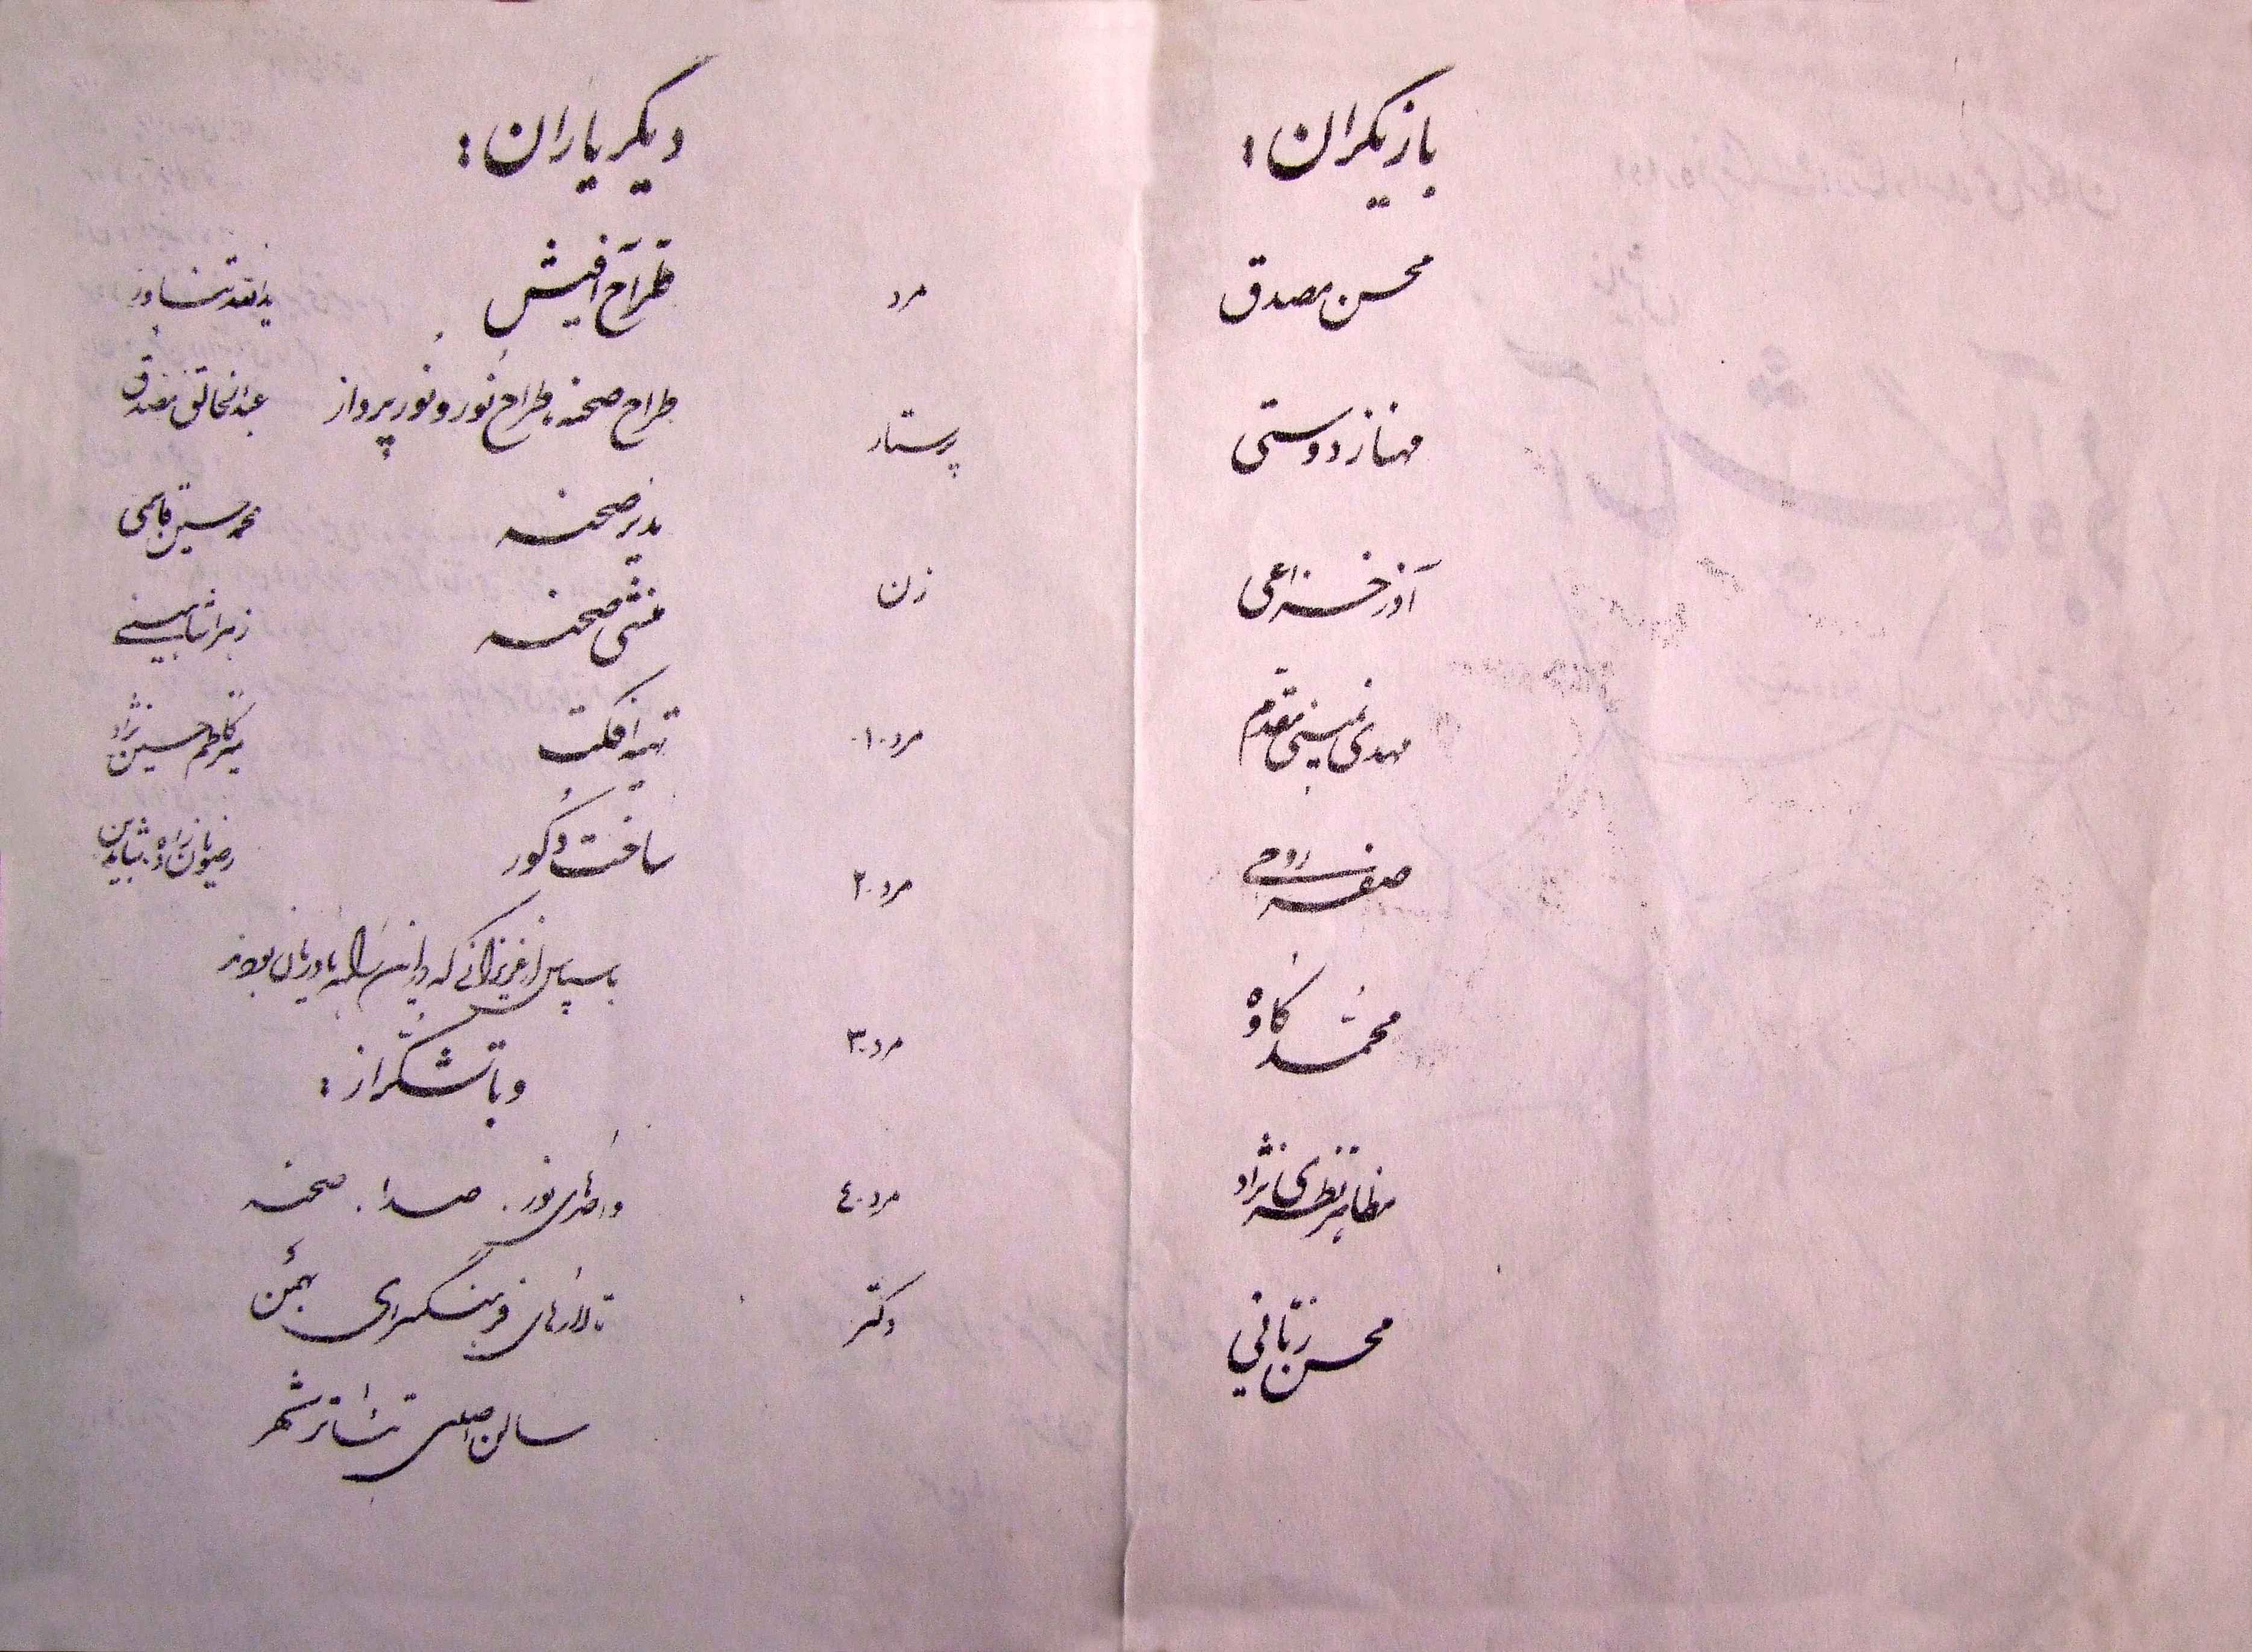 بازیگران:
محسن مصدق مرد
مهناز دوستی پرستار
آذر خزاعی زن
مهدی مقدم مرد ۱۰
مرد ۲۰
محمد کاوه مرد ۳۰
مظاهر نظری نژاد مرد ۴۰
محسن ربانی دکتر
دیگر یاران:
طراح آفیش
طراح صحنه، طراح نور و نورپرداز عبدالخالق مصدق
مدیر صحنه محمدحسین قاسمی
منشی صحنه زهرا
تهیه افکت میرکاظم حسین نژاد
ساخت دکور
با سپاس از عزیزانی که در این یاورمان بودند
و با تشکر از:
واحدهای نور. صدا. صحنه
تالارهای فرهنگسرای بهمن
سالن اصلی تئاتر شهر